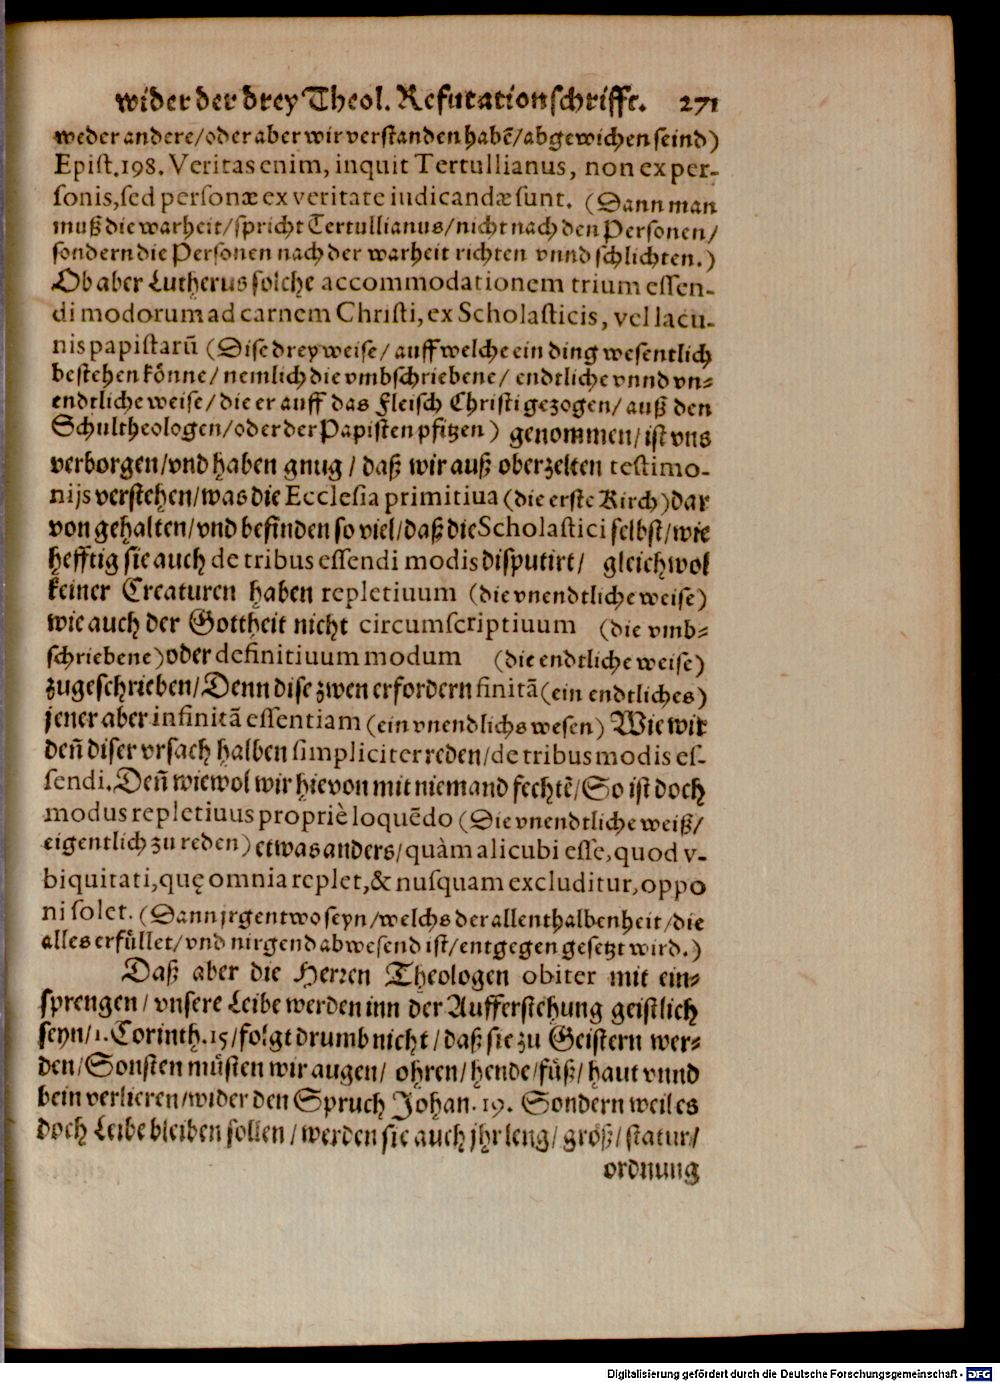 wider der drey Theol. Refutationschrifft. 271
weder andere/oder aber wir verstanden habẽ/abgewichen seind)
Epist.198. Veritas enim, inquit Tertullianus, non ex per-
sonis,sed personæ ex veritate iudicandæ sunt. (Dann man
muß die warheit/spricht Tertullianus/nicht nach den Personen/
sondern die Personen nach der warheit richten vnnd schlichten.)
Ob aber Lutherus solche accommodationem trium essen-
di modorum ad carnem Christi, ex Scholasticis, vel lacu-
nis papistarũ (Dise drey weise/ auff welche ein ding wesentlich
bestehen könne/ nemlich die vmbschriebene/ endtliche vnnd vn-
endtliche weise/ die er auff das Fleisch Christi gezogen/ auß den
Schultheologen/oder der Papisten pfitzen) genommen/ ist vns
verborgen/vnd haben gnug/ daß wir auß oberzelten testimo-
nijs verstehen/was die Ecclesia primitiua (die erste Kirch)dar
von gehalten/vnd befinden so viel/daß die Scholastici selbst/wie
hefftig sie auch de tribus essendi modis disputirt/ gleichwol
keiner Creaturen haben repletiuum (die vnendtliche weise)
wie auch der Gottheit nicht circumscriptiuum (die vmb-
schriebene)oder definitiuum modum (die endtliche weise)
zugeschrieben/Denn dise zwen erfordern finitã(ein endtliches)
jener aber infinitã essentiam (ein vnendlichs wesen) Wie wir
deñ diser vrsach halben simpliciter reden/de tribus modis es-
sendi.Deñ wiewol wir hievon mit niemand fechtẽ/So ist doch
modus repletiuus propriè loquẽdo (Die vnendtliche weiß/
eigentlich zu reden) etwas anders/quàm alicubi esse,quod v-
biquitati,quę omnia replet,& nusquam excluditur,oppo
ni solet. (Dann jrgentwo seyn/welchs der allenthalbenheit/die
alles erfüllet/vnd nirgend abwesend ist/entgegen gesetzt wird.)
Daß aber die Herren Theologen obiter mit ein-
sprengen/ vnsere Leibe werden inn der Aufferstehung geistlich
seyn/1.Corinth.15/folgt drumb nicht/daß sie zu Geistern wer-
den/Sonsten müsten wir augen/ ohren/hende/füß/ haut vnnd
bein verlieren/wider den Spruch Johan.19. Sondern weil es
doch Leibe bleiben sollen/werden sie auch jhr leng/ größ/statur/
ordnung
Digitalisierung gefördert durch die Deutsche Forschungsgemeinschaft - DFG